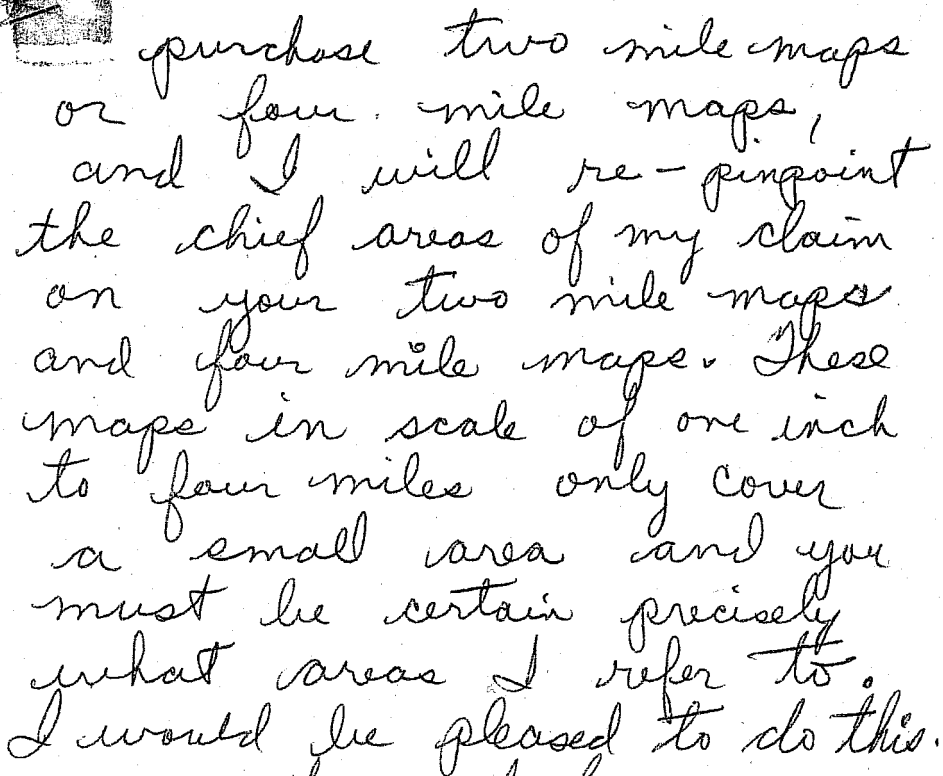 purchase two mile maps
or four mile maps,
and I will re-pinpoint
the chief areas of my claim
on your two mile maps
and four mile maps. These
maps in scale of one inch
to four miles only cover
a small area and you
must be certain precisely
what areas I refer to.
I would be pleased to do this.